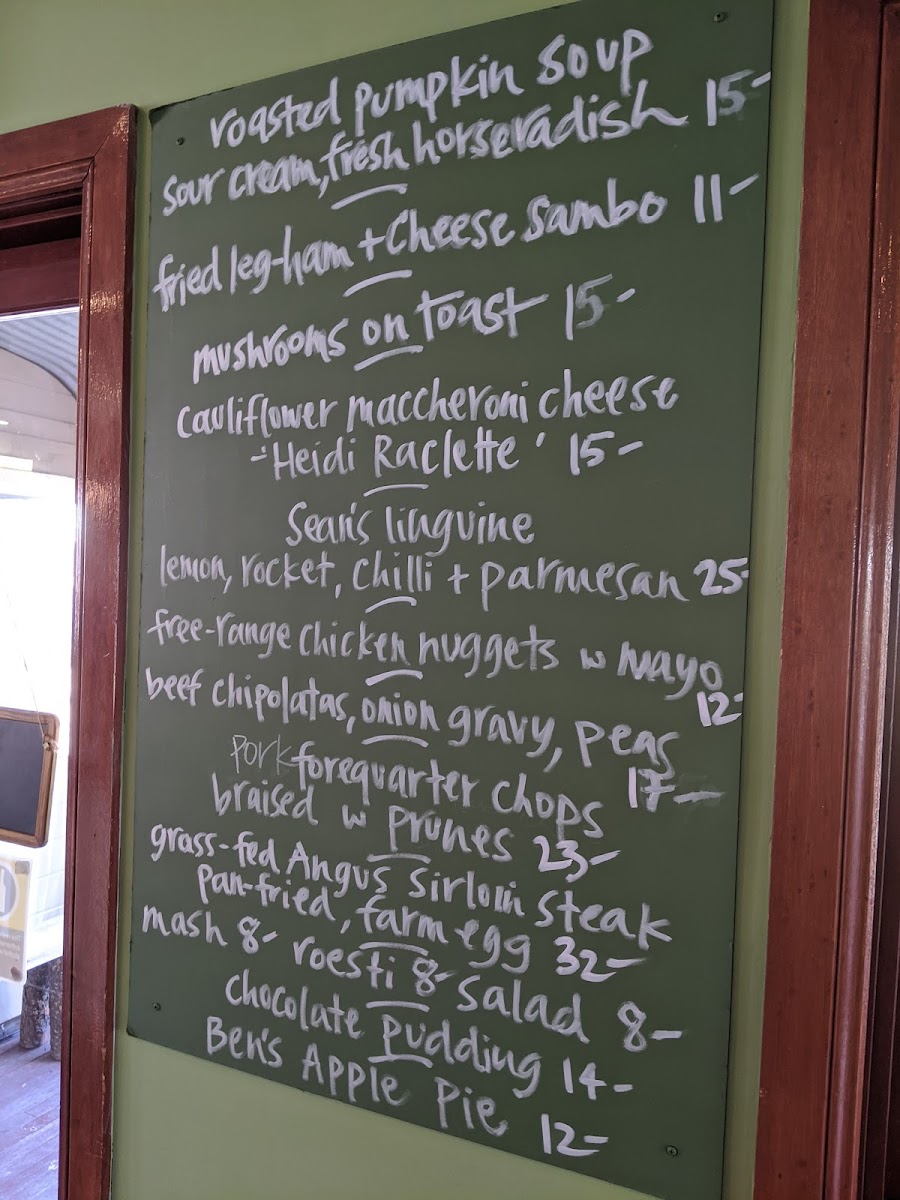 roasted pumpkin soup
sour cream, fresh horseradish 15-
fried leg-ham + Cheese Sambo 11-
mushrooms on toast 15-
cauliflower maccheroni cheese
-'Heidi Raclette' 15-
Sean's linguine
lemon, rocket, chilli + parmesan 25-
free-range chicken nuggets w mayo
12-
beef chipolatas, onion gravy, peas
17-
Pork forequarter chops
braised w prunes 23-
grass-fed Angus Sirloin Steak
pan-fried, farm egg 32-
mash 8- roesti 8- Salad 8-
Chocolate Pudding 14-
Ben's Apple Pie 12-